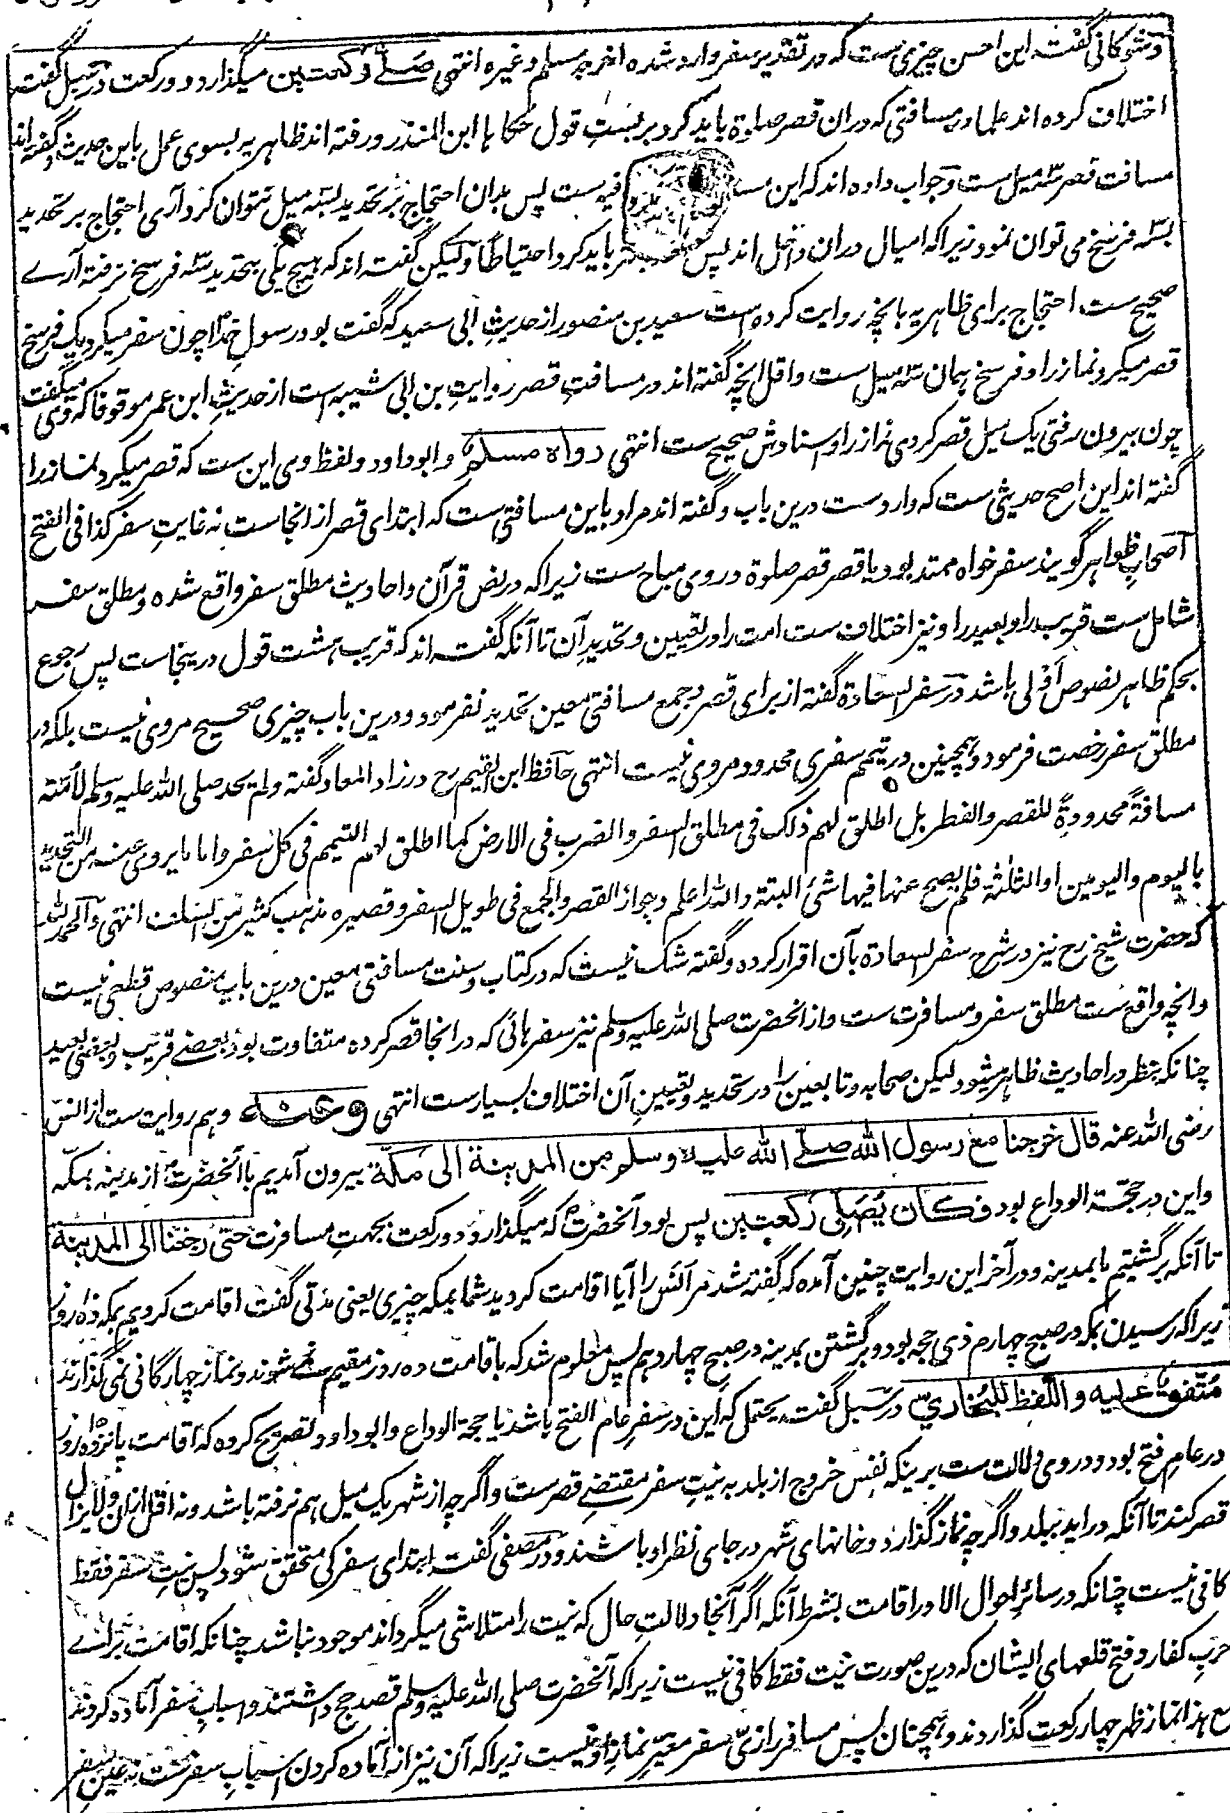 وشوکانی گفته این احسن چیزی ست که در تقدیر سفر وارد شده اخرجه مسلم وغیره انتهی صلی رکعتین میگذارد دو رکعت در سبل گفت
اختلاف کرده اند علما در مسافتی که دران قصر صلوة باید کرد بر بست قول حکاها ابن المنذر و رفته اند ظاهریه بسوی عمل باین حدیث و گفته اند
مسافت قصر سه میل ست و جواب داده اند که این فیه ست پس بدان احتجاج بر تحدید بسه میل نتوان کرد آری احتجاج بر تحدید
بسه فرسخ می توان نمود زیرا که امیال دران داخل اند پس باید کرد احتیاطا ولیکن گفته اند که هیچ یکی بتحدید سه فرسخ نرفته آرے
صحیح ست احتجاج برای ظاهریه بانچه روایت کرده است سعید بن منصور از حدیث ابی سعید که گفت بود رسول خدا چون سفر میکرد یک فرسخ
قصر میکرد نماز را و فرسخ همان سه میل ست و اقل انچه گفته اند در مسافت قصر روایت بن ابی شیبه است از حدیث ابن عمر موقوفا که وی میگفت
چون بیرون رفتی یک میل قصر کردمی نماز را و اسنادش صحیح ست انتهی رواه مسلم و ابو داود و لفظ وی این ست که قصر میکرد نماز را
گفته اند این اصح حدیثی ست که وارد ست درین باب و گفته اند مراد باین مسافتی ست که ابتدای قصر از انجاست نه غایت سفر کذا فی الفتح
اصحاب ظواهر گویند سفر خواه ممتد بود یا قصر قصر صلوة در وی مباح ست زیرا که در نص قرآن و احادیث مطلق سفر واقع شده و مطلق سفر
شامل ست قریب را و بعید را و نیز اختلاف ست امت را در تعیین و تحدید آن تا آنکه گفته اند که قریب هشت قول درینجاست پس رجوع
بحکم ظاهر نصوص اولی باشد در سفر السعادة گفته از برای قصر و جمع مسافتی معین تحدید نفرمود و درین باب چیزی صحیح مروی نیست بلکه در
مطلق سفر رخصت فرمود و همچنین در تیمم سفری محدود مروی نیست انتهی حافظ ابن القیم رح در زاد المعاد گفته ولم یحد صلی الله علیه وسلم لامته
مسافة محدودة للقصر والفطر بل اطلق لهم ذلک فی مطلق السفر والضرب فی الارض کما اطلق لهم التیمم فی کل سفر واما ما یروی عنه من التحدید
بالیوم والیومین او الثلثة فلم یصح عنه فیها شئ البتة والله اعلم وجواز القصر والجمع فی طویل السفر وقصیره مذهب کثیر من السلف انتهی والحمد لله
که حضرت شیخ رح نیز در شرح سفر السعادة بآن اقرار کرده و گفته شک نیست که در کتاب و سنت مسافتی معین درین باب بنصوص قطعی نیست
و انچه واقع ست مطلق سفر و مسافرت ست و از انحضرت صلی الله علیه وسلم نیز سفرهائی که در انجا قصر کرده متفاوت بود بعضے قریب و بعضی بعید
چنانکه بنظر در احادیث ظاهر میشود لیکن صحابه و تابعین را در تحدید و تعیین آن اختلاف بسیار ست انتهی وعنه و هم روایت ست از انس
رضی الله عنه قال خرجنا مع رسول الله صلے الله علیه وسلم من المدینة الی مکة بیرون آمدیم با آنحضرت از مدینه بمکه
و این در حجة الوداع بود فکان یصلی رکعتین پس بود آنحضرت که میگذارد دو رکعت بجهت مسافرت حتی رجعنا الی المدینة
تا آنکه برگشتیم ما بمدینه و در آخر این روایت چنین آمده که گفته شد مر انس را آیا اقامت کردید شما بمکه چیزی یعنی مدتی گفت اقامت کردیم بمکه ده روز
زیرا که رسیدن بمکه در صبح چهارم ذی حجه بود و برگشتن بمدینه در صبح چهاردهم پس معلوم شد که باقامت ده روز مقیم نمی شوند و نماز چهارگانی نمی گذارند
متفق علیه واللفظ للبخاری در سبل گفته یحتمل که این در سفر عام الفتح باشد یا حجة الوداع و ابو داود تصریح کرده که اقامت پانزده روز
در عام فتح بود و در وی دلالت ست برینکه نفس خروج از بلد به نیت سفر مقتضی قصر ست و اگرچه از شهر یک میل هم نرفته باشد و نه اقل ازان و لا یزال
قصر کند تا آنکه دراید ببلد و اگرچه نماز گذارد و خانهای شهر در جای نظر او باشند و در مصفی گفته ابتدای سفر کی متحقق شود پس نیت سفر فقط
کافی نیست چنانکه در سائر احوال الا در اقامت بشرط آنکه اگر آنجا دلالت حال که نیت را متلاشی میگرداند موجود نباشد چنانکه اقامت براے
حرب کفار و فتح قلعهای ایشان که درین صورت نیت فقط کافی نیست زیرا که آنحضرت صلی الله علیه وسلم قصد حج داشتند و اسباب سفر آماده کردند
مع هذا نماز ظهر چهار رکعت گذاردند و همچنان پس مسافر از زی سفر مغیر نماز او نیست زیرا که آن نیز از آماده کردن اسباب سفر ست نه عین سفر